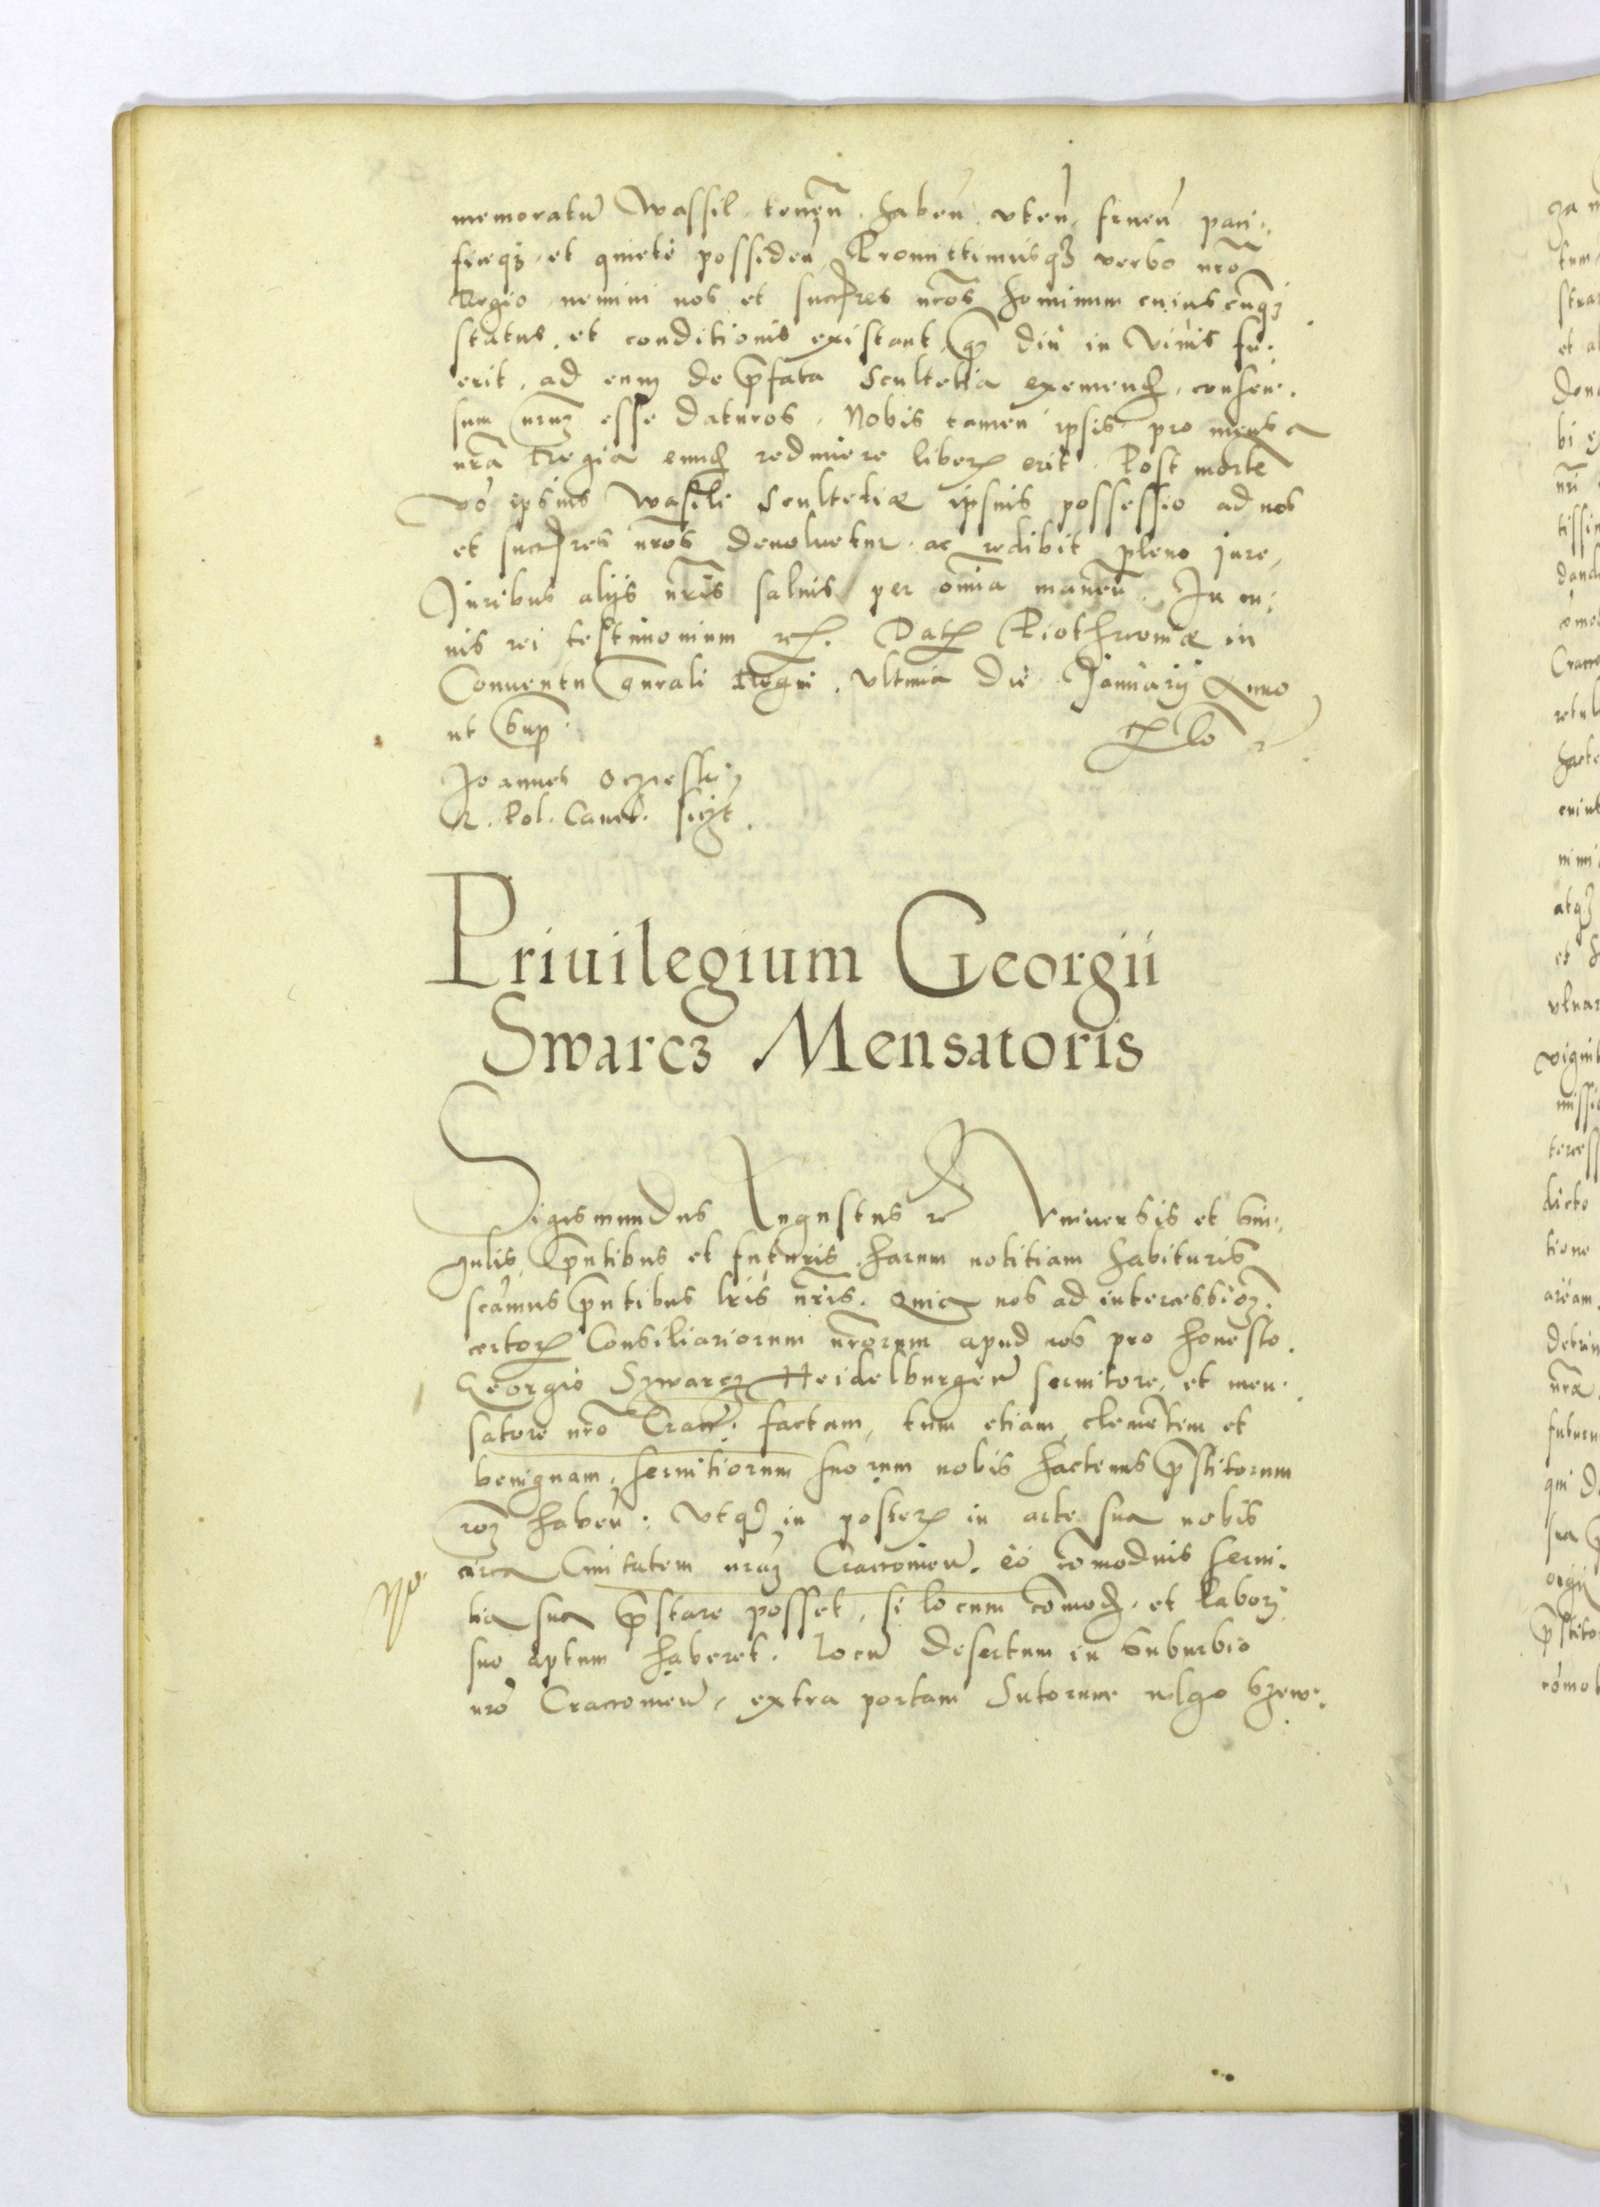 memoratū Wassil tenen̄. haben̄ vten̄. fruen̄ paci-
ficeqʒ et quiete possiden̄. Promittimusqʒ verbo nr̄o
Regio nemini nos et succr̄es nr̄os hominum cuiuscūqʒ
status. et conditionis existant, qp̄ diu in viuis fu-
erit, ad eum de p̄fata Scultetia eximend. consen-
sum nrūm esse daturos. Nobis tamen ipsis pro mensa
nr̄a Regia eund redimere liber erit. Post mortē
vo ipsius Wasili Scultetiæ ipsius possessio ad nos
et succr̄es nr̄os deuoluetur ac redibit pleno jure,
Juribus alijs nr̄is saluis per om̄ia manen̄. In cu-
uis rei testimonium etc. Dat Piothrcouiæ in
Conuentu gn̄rali Regni. vltima die Januarij Anno
ut sup̄.
Joannes Oczieski
R. Pol. Canc. scpt.
Priuilegium Georgii
Swarcz Mensatoris
Sigismundus Augustus etc Vniuersis et sin-
gulis, pn̄tibus et futuris harum notitiam habituris
scām̄us pn̄tibus lr̄is nr̄is. Quia nos ad intercessioʒ.
certor Consiliariorum nr̄orum apud nos pro honesto.
Georgio Szwarcz Heidelburgen̄ seruitore, et men-
satore nr̄o Crac̄. factam, tum etiam clementem et
benignam, seruitiorum suorum nobis hactenus p̄stitorum
roʒ haben̄: Vtqʒ in poster in arte sua nobis
circa Ciuitatem nrāʒ Cracouien̄. eo cōmodius serui-
tia sua p̄stare posset, si locum cōmod. et labori
suo aptum haberet. locū desertum in Suburbio
nr̄o Cracouien̄, extra portam Sutorum vulgo Szew-